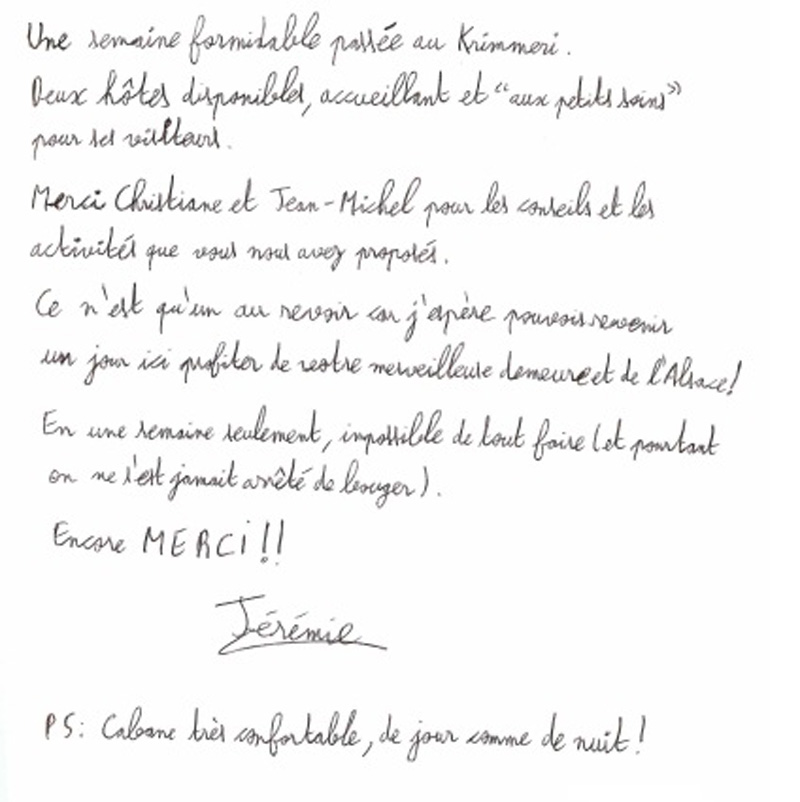 Une semaine formidable passée au Krimmeri.
Deux hôtes disponibles, accueillant et “aux petits soins”
pour ses visiteurs.
Merci Christiane et Jean-Michel pour les conseils et les
activités que vous nous avez proposés.
Ce n'est qu'un au revoir car j'espère pouvoir revenir
un jour ici profiter de votre merveilleuse demeure et de l'Alsace!
En une semaine seulement, impossible de tout faire (et pourtant
on ne s'est jamait arrêté de bouger).
Encore MERCi!!
Jérémie
PS: Cabane très confortable, de jour comme de nuit!